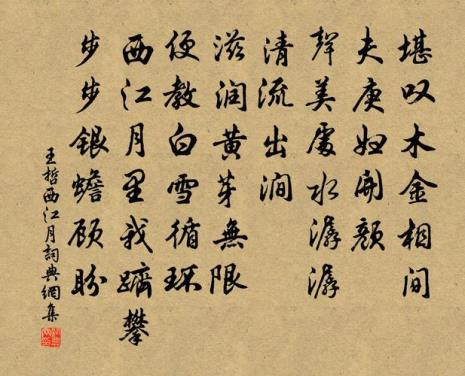 堪叹木金相间
夫庚妇颜
聲美處水潺潺
清流出涧
滋润黄芽無限
便教白雪循环
西江月里我躋攀
步步银蟾顾盼
王哲西江月詞典網集